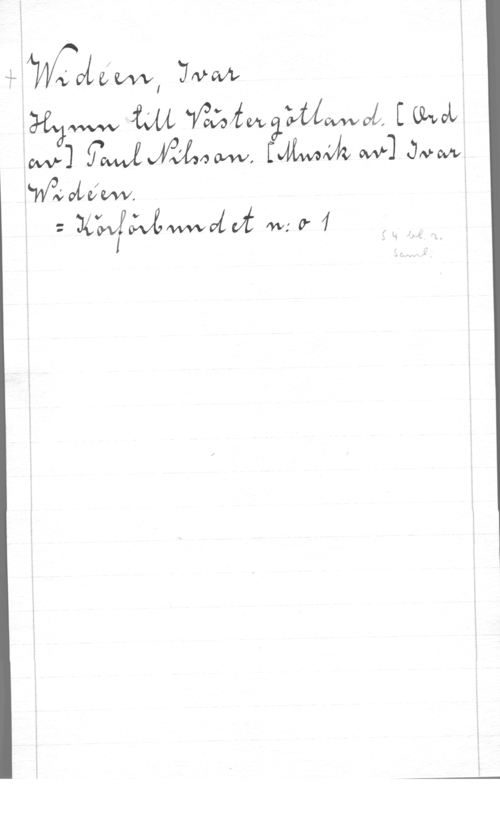 + Widéen, Ivar
Hymn till Västergötland. [Ord
av] Paul Nilsson. [Musik av] Ivar
Widéen.
= Körförbundet n:o 1